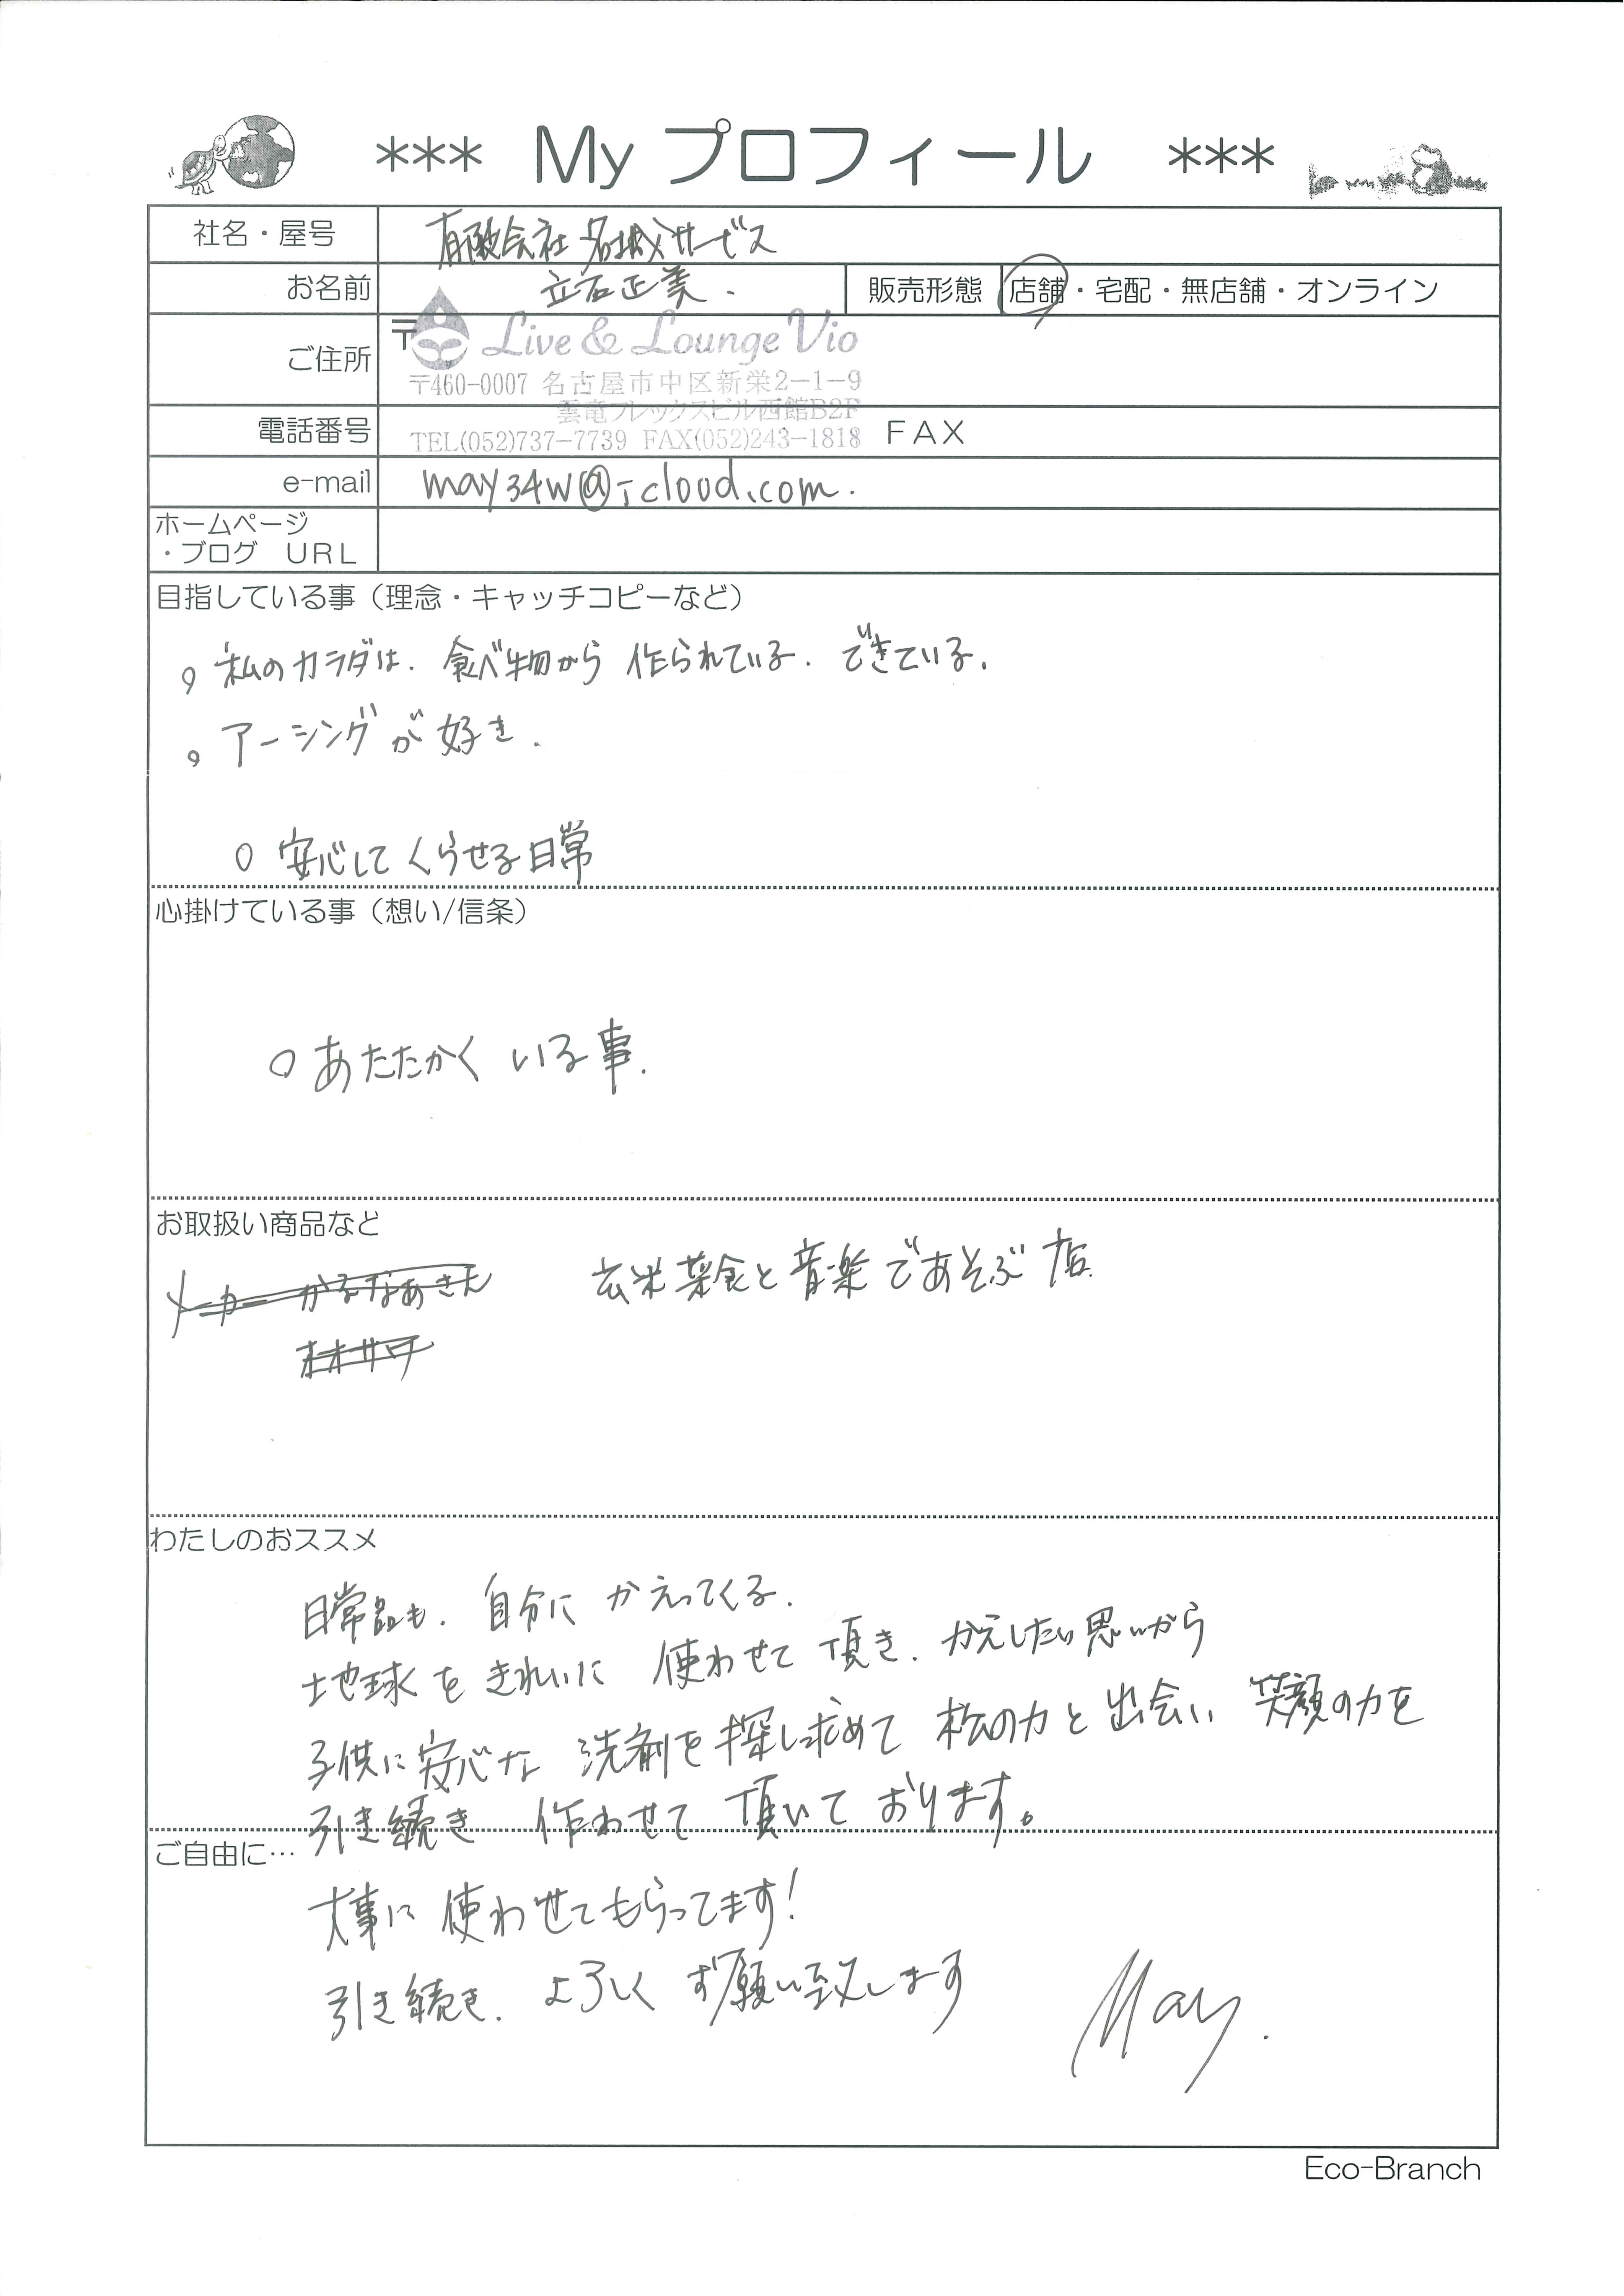 *** My プロフィール ***
社名・屋号 有限会社 名城サービス
お名前 立石正美. 販売形態 店舗・宅配・無店舗・オンライン
ご住所 〒 Live & Lounge Vio
〒460-0007 名古屋市中区新栄2-1-9
雲竜フレックスビル西館B2F
電話番号 TEL(052)737-7739 FAX(052)243-1818 FAX
e-mail may34w@icloud.com.
ホームページ
・ブログ URL
目指している事(理念・キャッチコピーなど)
。私のカラダは、食べ物から 作られている. できている.
。アーシングが好き.
○ 安心してくらせる日常
心掛けている事(想い/信条)
○ あたたかく いる事.
お取扱い商品など
メーカー かるなあさん 玄米菜食と音楽であそぶ店.
わたしのおススメ
日常品も、自分に かえってくる.
地球を きれいに 使わせて 頂き、かえしたい思いから
子供に安心な 洗剤を探し求めて 松の力と出会い、笑顔の力を
引き続き 作わせて 頂いて おります。
ご自由に…
大事に 使わせてもらってます!
引き続き、よろしく お願い致します
May.
Eco-Branch